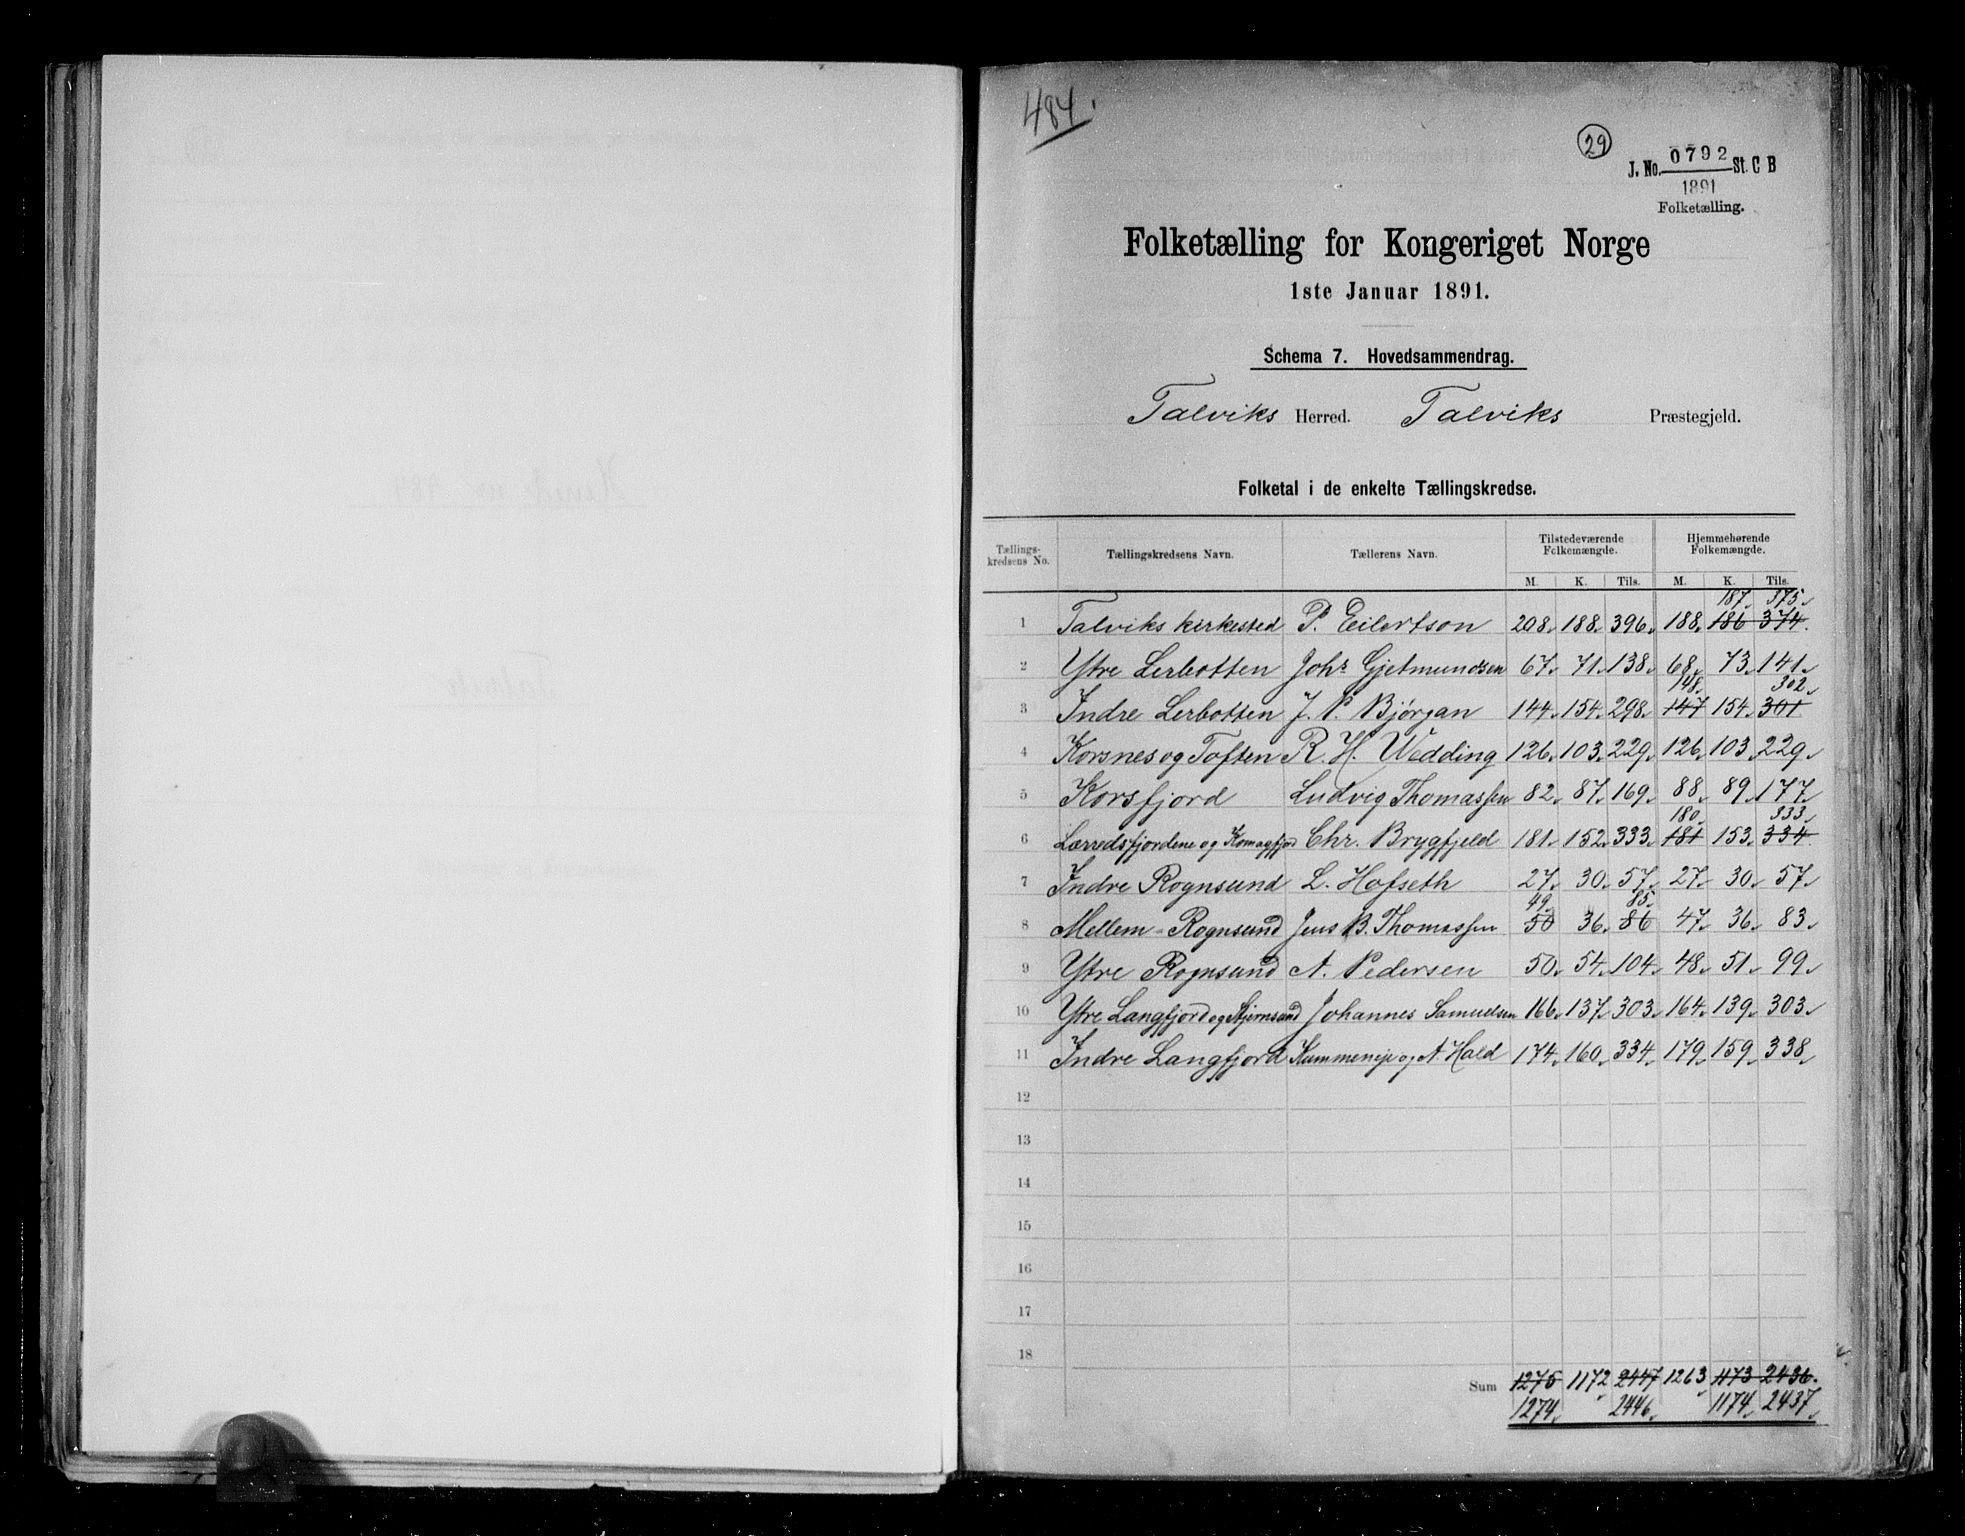 484.
29
J. No. 0792 St. C B
1891
Folketælling.
Folketælling for Kongeriget Norge
1ste Januar 1891.
Schema 7. Hovedsammendrag.
Talviks Herred. Talviks Præstegjeld.
Folketal i de enkelte Tællingskredse.
Tællings-kredsens No. Tællingskredsens Navn. Tællerens Navn. Tilstedeværende Folkemængde. Hjemmehørende Folkemængde.
M. K. Tils. M. K. Tils.
187 375
1 Talviks kirkested P. Eilertson 208 188 396 188 186 374
2 Ytre Lerbotten Johs Gjetmundsen 67 71 138 68 73 141
148 302
3 Indre Lerbotten J. P. Bjørgan 144 154 298 147 154 301
4 Korsnes og Toften R. H. Wedding 126 103 229 126 103 229
5 Korsfjord Ludvig Thomassen 82 87 169 88 89 177
180 333
6 Lærredsfjordene og Komagfjord Chr. Brygfjeld 181 152 333 181 153 334
7 Indre Rognsund L. Hofseth 27 30 57 27 30 57
49 85
8 Mellem-Rognsund Jens B. Thomassen 50 36 86 47 36 83
9 Ytre Rognsund A. Pedersen 50 54 104 48 51 99
10 Ytre Langfjord og Stjernsund Johannes Samuelsen 166 137 303 164 139 303
11 Indre Langfjord og A Hald 174 160 334 179 159 338
12
13
14
15
16
17
18
Sum 1275 1172 2447 1263 1173 2436
1274 2446 1174 2437